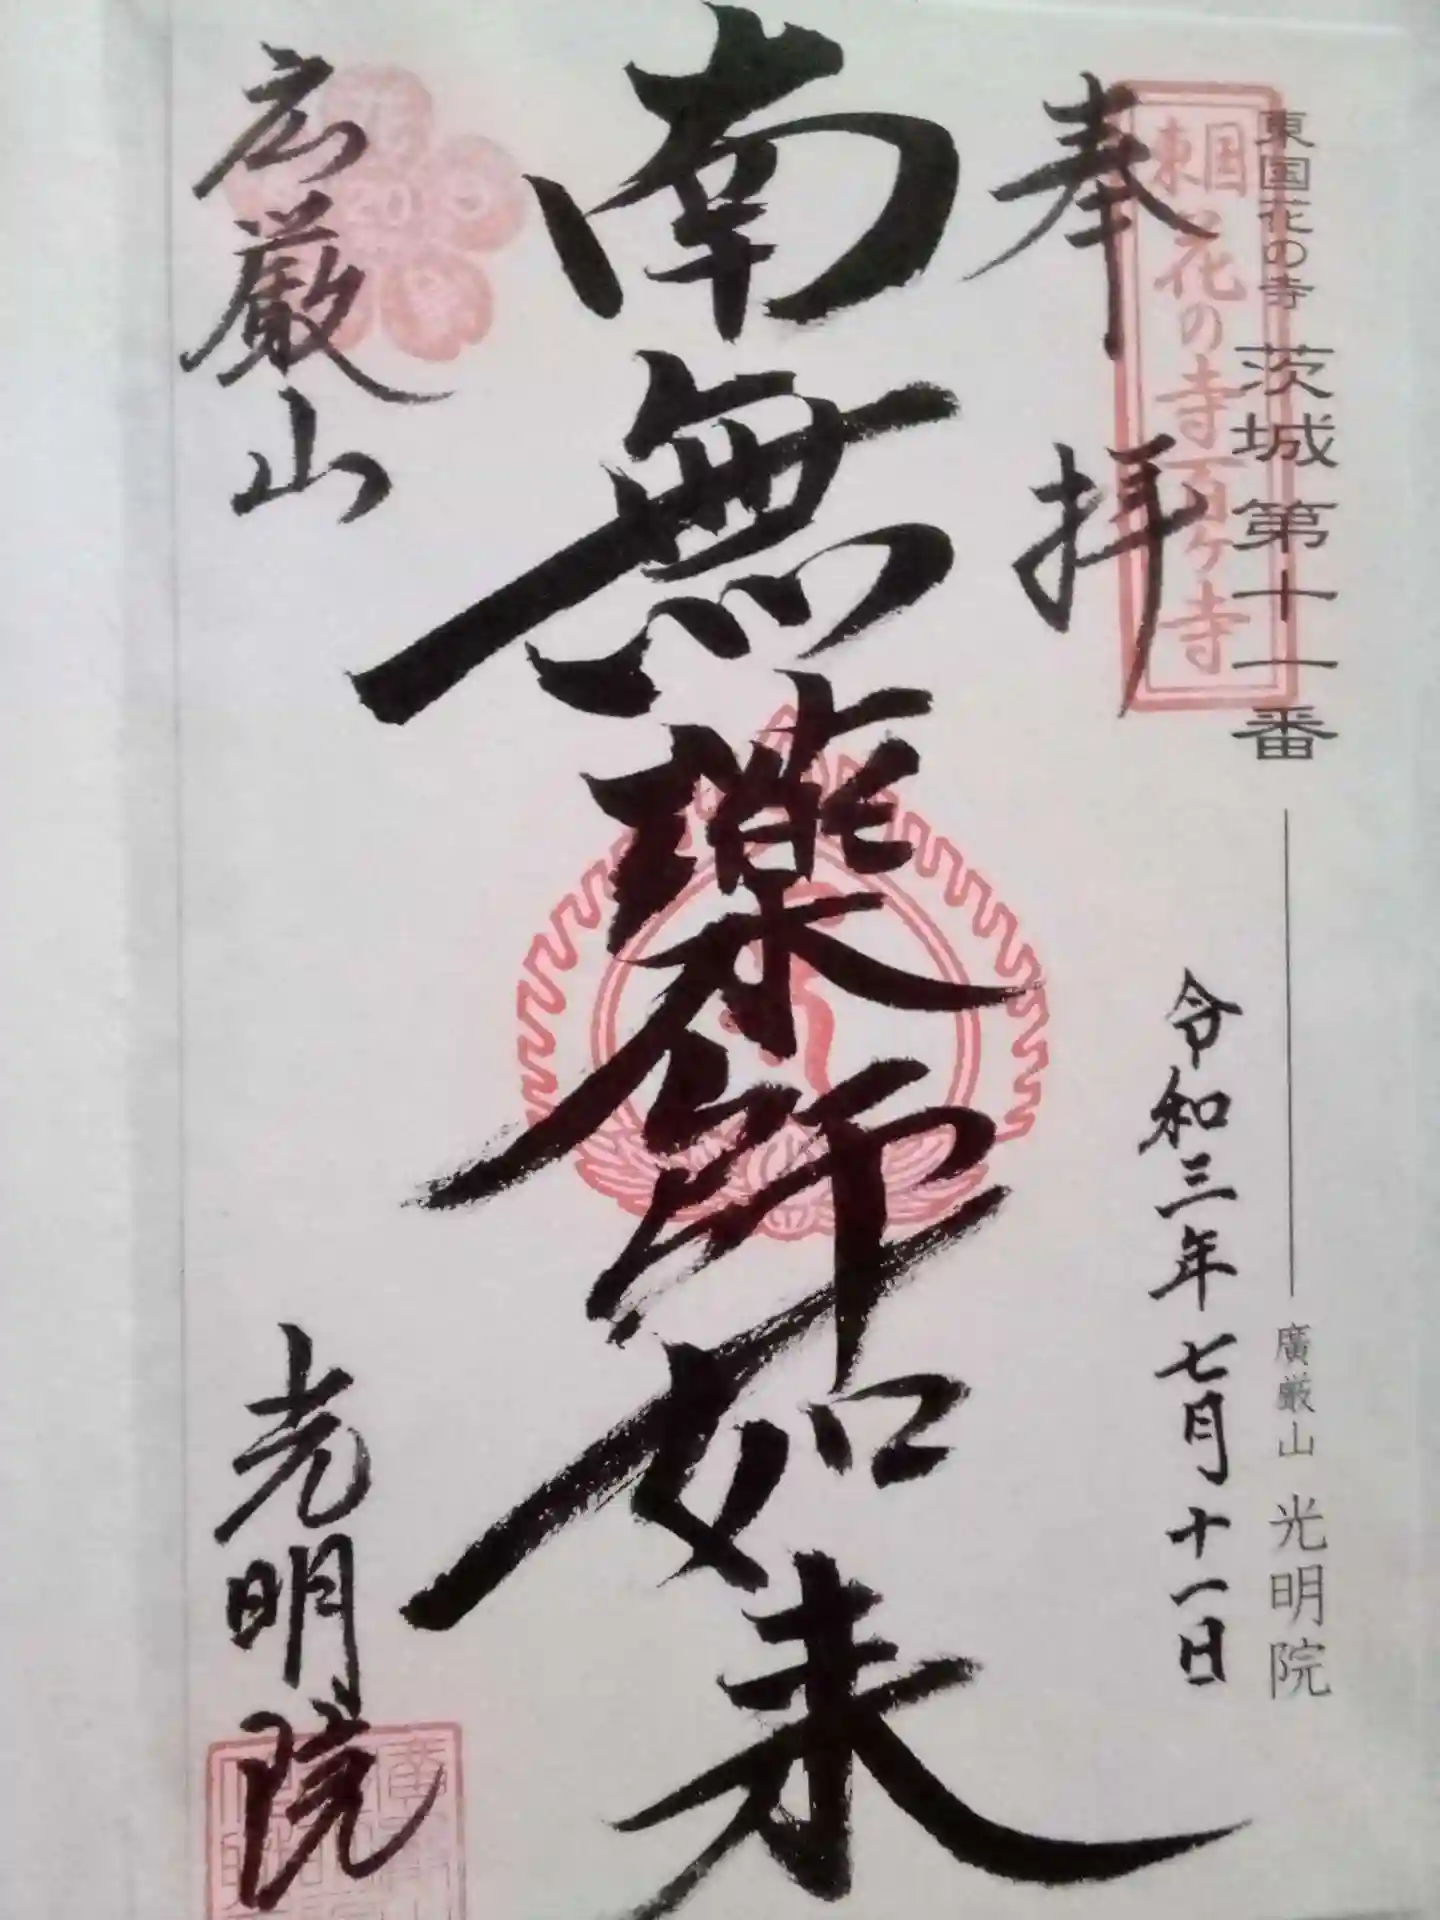 東国花の寺 茨城第十一番 廣厳山 光明院
東国
花の寺百ヶ寺
奉拝
令和三年七月十一日
南無薬師如来
広厳山
光明院